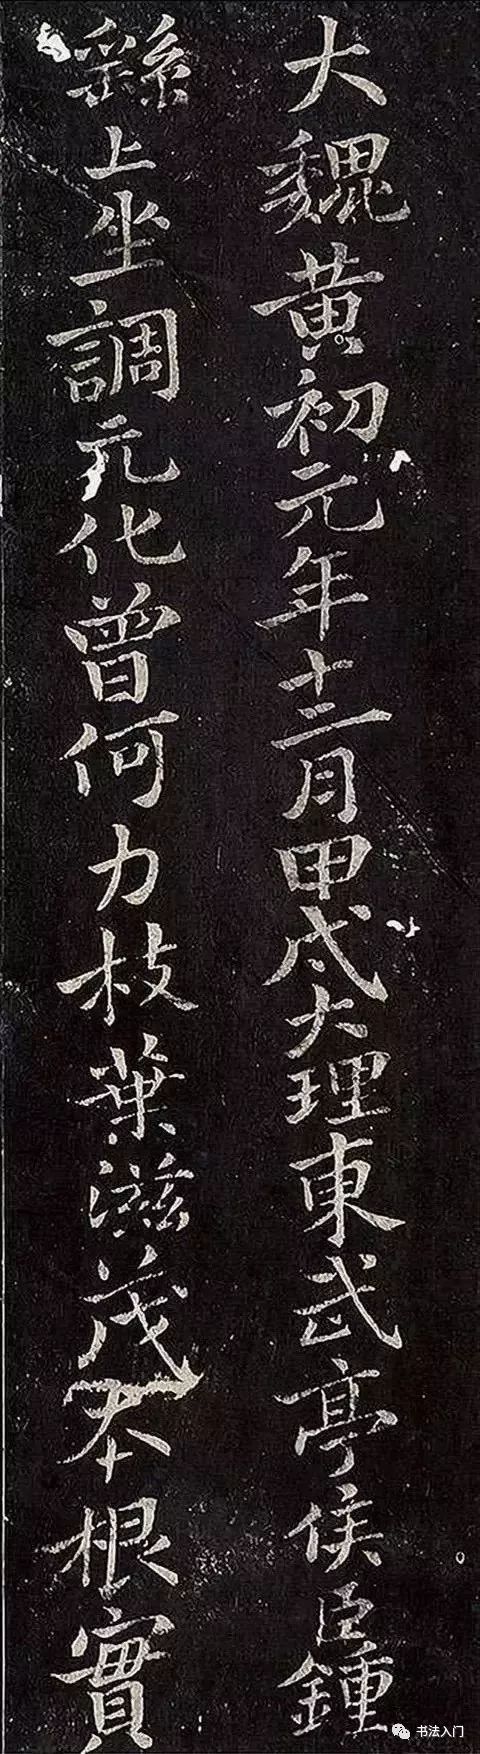 大魏黄初元年十二月甲戌大理東武亭侯臣鍾
繇上坐調元化曾何力枝葉滋茂本根實
书法入门